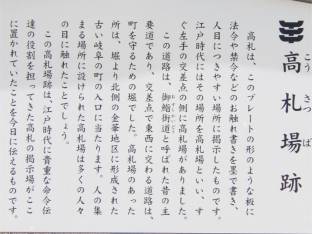 高札場跡
こうさつば
高札は、このプレートの形のような板に
法令や禁令などのお触れ書きを墨で書き、
人目につきやすい場所に掲示したものです。
江戸時代にはその場所を高札場といい、す
ぐ左手の交差点の側に高札場がありました。
この道路は、御鮨街道と呼ばれた昔の主
要道であり、交差点で東西に交わる道路は、
町を守るための堀でした。高札場のあった
所は、堀より北側の金華地区に形成された
古い岐阜の町の入口に当たります。人の集
まる場所に設けられた高札場は多くの人々
の目に触れたことでしょう。
この高札場跡は、江戸時代に貴重な命令伝
達の役割を担ってきた高札の掲示場がここ
に置かれていたことを今日に伝えるものです。